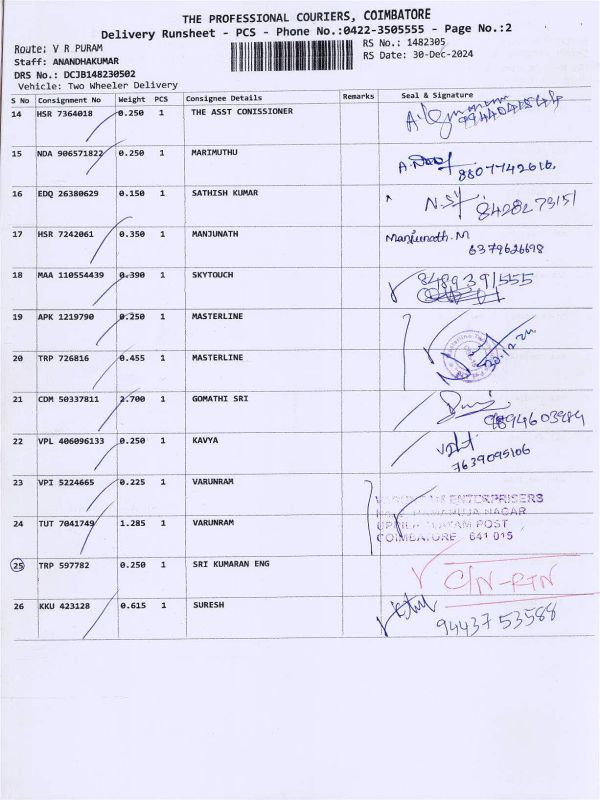 THE PROFESSIONAL COURIERS, COIMBATORE
Delivery Runsheet - PCS - Phone No.:0422-3505555 - Page No.:2
Route: V R PURAM
RS No.: 1482305
Staff: ANANDHAKUMAR
RS Date: 30-Dec-2024
DRS No.: DCJB148230502
Vehicle: Two Wheeler Delivery
S No Consignment No Weight PCS Consignee Details Remarks Seal & Signature
14 HSR 7364018 0.250 1 THE ASST CONISSIONER
15 NDA 906571822 0.250 1 MARIMUTHU 8807742616.
16 EDQ 26380629 0.150 1 SATHISH KUMAR N.SY 8428273151
17 HSR 7242061 0.350 1 MANJUNATH Manjunath.M
6379626698
18 MAA 110554439 0.390 1 SKYTOUCH 8489391555
19 APK 1219790 0.250 1 MASTERLINE
20 TRP 726816 0.455 1 MASTERLINE
21 CDM 50337811 2.700 1 GOMATHI SRI 9894603984
22 VPL 406096133 0.250 1 KAVYA
7639095106
23 VPI 5224665 0.225 1 VARUNRAM
ENTERPRISERS
NAGAR
24 TUT 7041749 1.285 1 VARUNRAM
POST
COIMBATORE 641 015
25 TRP 597782 0.250 1 SRI KUMARAN ENG C/N-RTN
26 KKU 423128 0.615 1 SURESH
9443753588